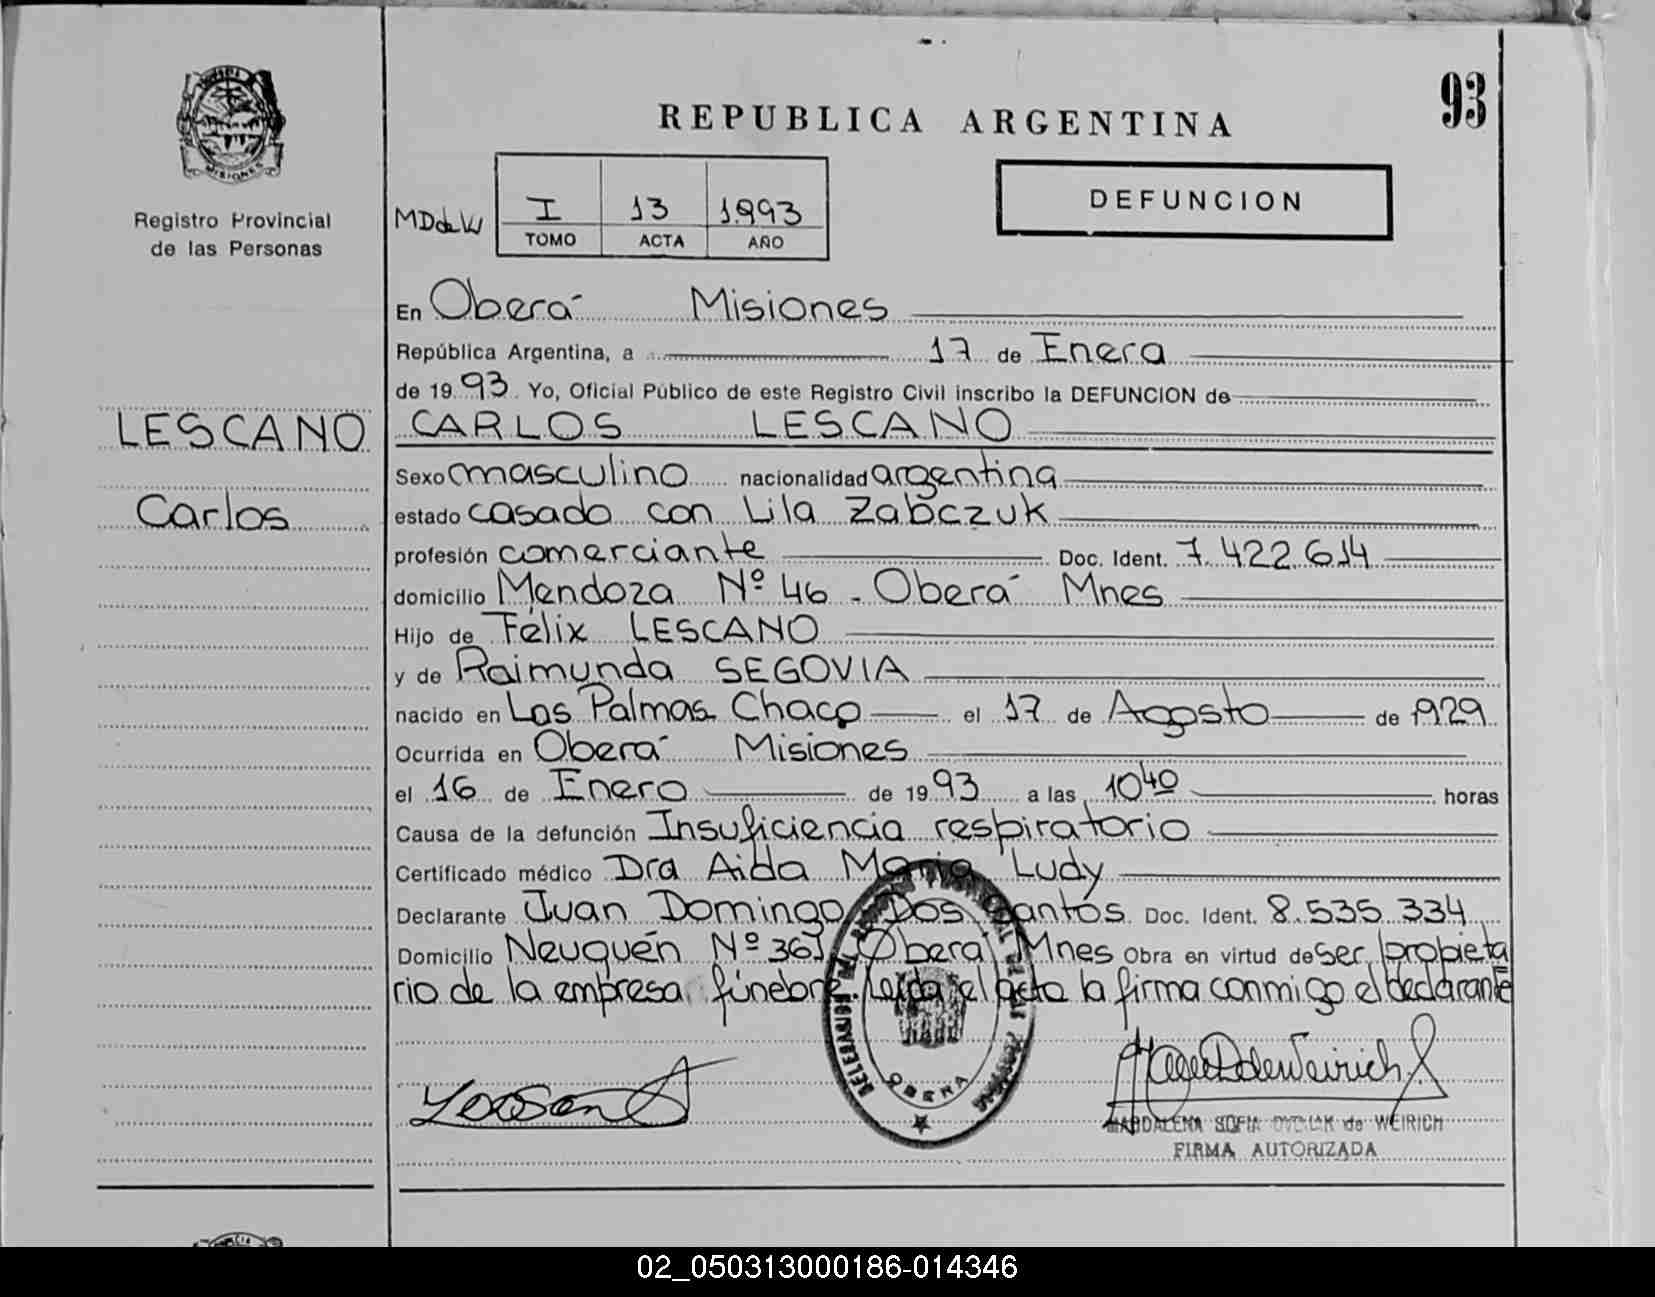 93
REPUBLICA ARGENTINA
DEFUNCION
MISIONES
Registro Provincial
de las Personas
MDdeW
I 13 1993
TOMO ACTA AÑO
En Oberá Misiones
República Argentina, a 17 de Enero
de 19 93 Yo, Oficial Público de este Registro Civil inscribo la DEFUNCION de
LESCANO
CARLOS LESCANO
Sexo masculino nacionalidad argentina
Carlos
estado casado con Lila Zabczuk
profesión comerciante Doc. Ident. 7.422.614
domicilio Mendoza Nº 46 - Oberá Mnes
Hijo de Félix LESCANO
y de Raimunda SEGOVIA
nacido en Las Palmas Chaco el 17 de Agosto de 1929
Ocurrida en Oberá Misiones
el 16 de Enero de 19 93 a las 10⁴⁰ horas
Causa de la defunción Insuficiencia respiratorio
Certificado médico Dra Aida Maria Ludy
Declarante Juan Domingo Dos Santos Doc. Ident. 8.535.334
Domicilio Neuquén Nº 361 Oberá Mnes Obra en virtud de ser propieta
rio de la empresa fúnebre. Leída el acta la firma conmigo el declarante
OBERA
de WEIRICH
FIRMA AUTORIZADA
02_050313000186-014346